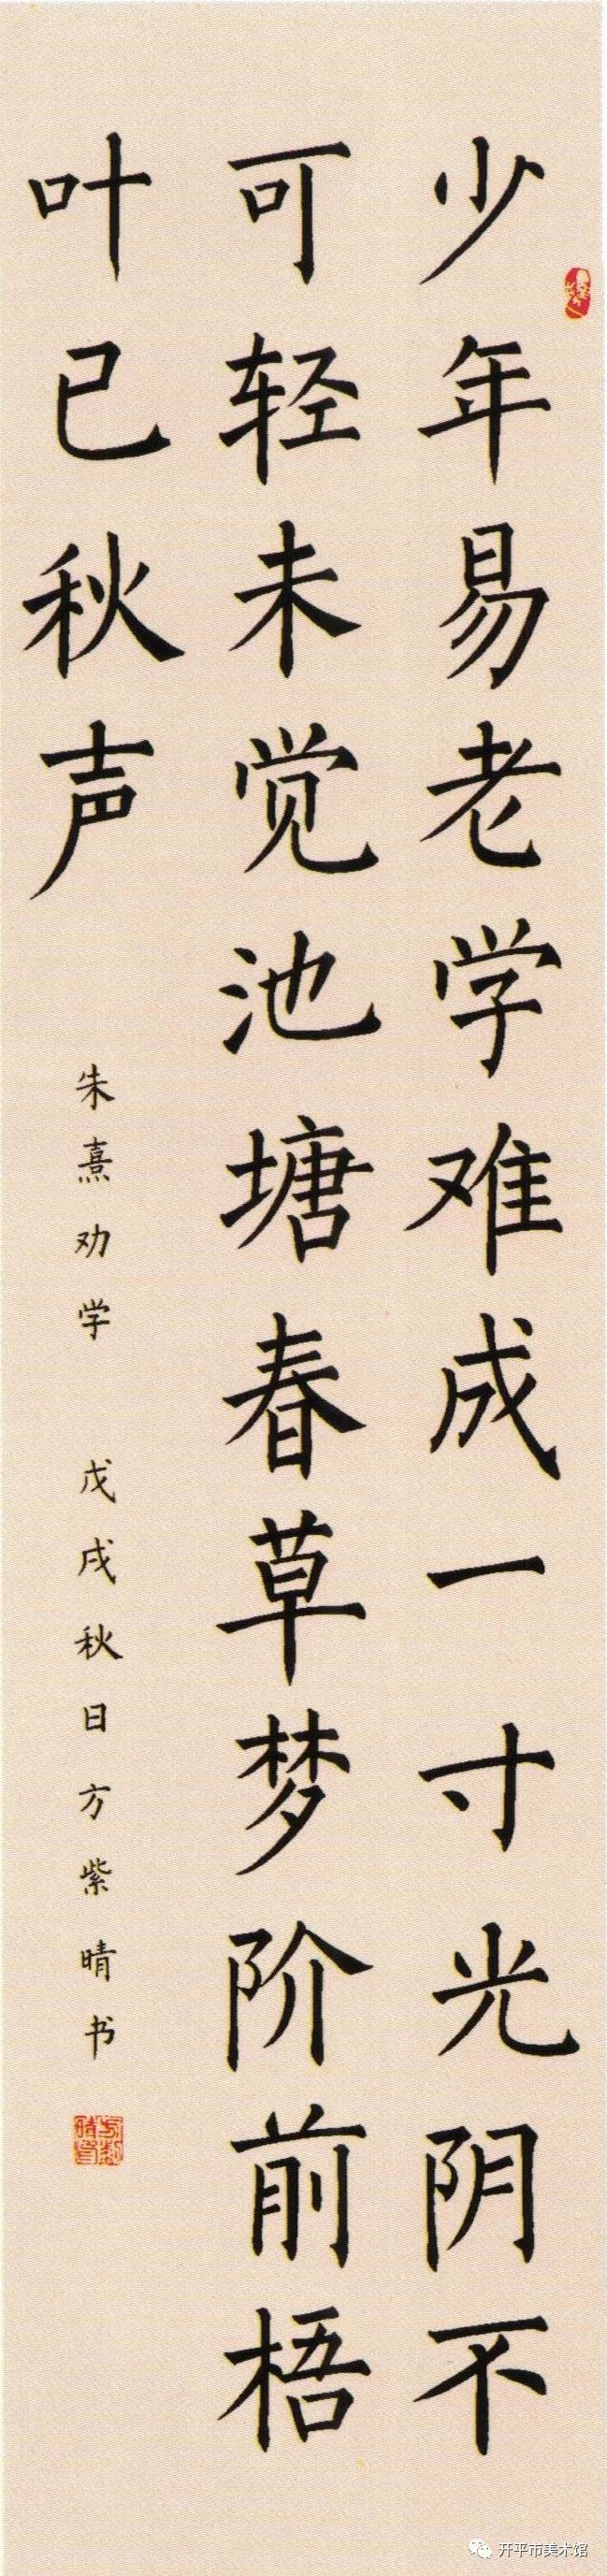 少年易老学难成一寸光阴不
可轻未觉池塘春草梦阶前梧
叶已秋声
朱熹劝学 戊戌秋日方紫晴书
开平市美术馆